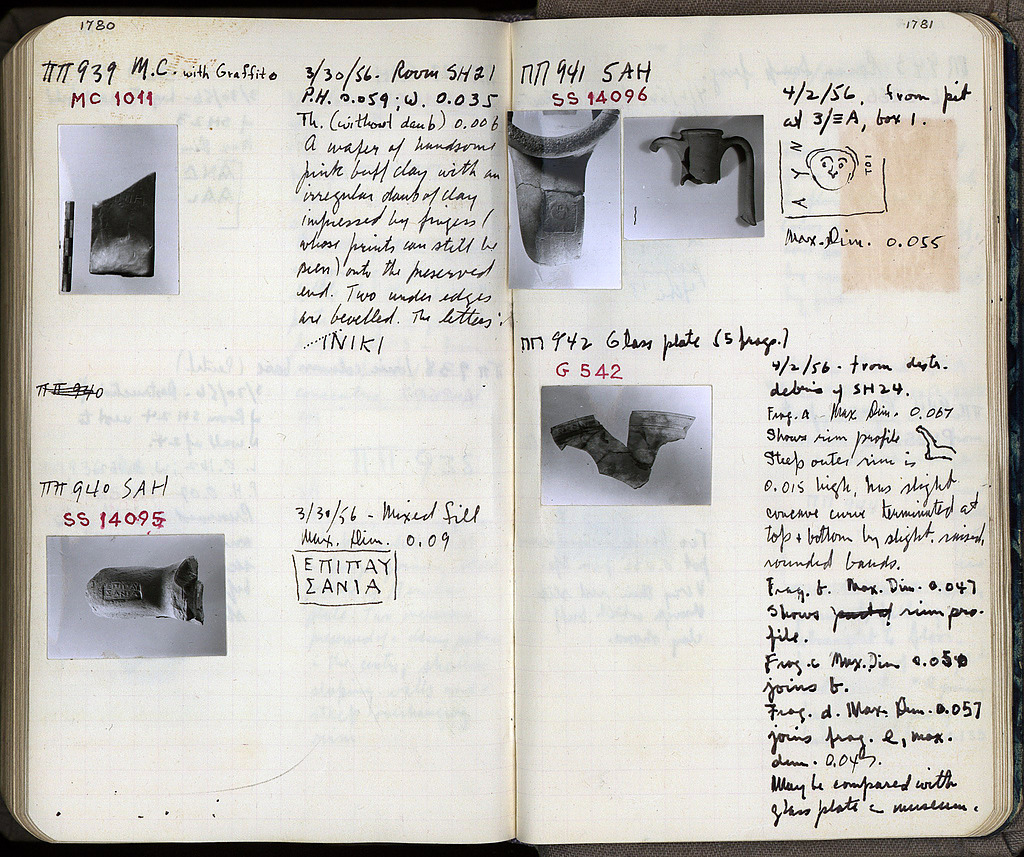 1780
ΠΠ 939 M.C. with Graffito
MC 1011
3/30/56 - Room SH21
P.H. 0.059; W. 0.035
Th. (without daub) 0.006
A wafer of handsome
pink buff clay with an
irregular daub of clay
impressed by fingers (
whose prints can still be
seen) onto the preserved
end. Two under edges
are bevelled. The letters:
....ΙΝΙΚΙ
ΠΠ 940
ΠΠ 940 SAH
SS 14095
3/30/56 - Mixed fill
Max. Dim. 0.09
ΕΠΙΠΑΥ
ΣΑΝΙΑ
ΕΠΙΠΑΥ
ΣΑΝΙΑ
1781
ΠΠ 941 SAH
SS 14096
4/2/56, from pit
at 3/ΞA, box 1.
Max. Dim. 0.055
ΠΠ 942 Glass plate (5 frags.)
G 542
4/2/56 - from destr.
debris of SH24.
Frag. a - Max Dim. 0.067
Shows rim profile
Steep outer rim is
0.015 high, has slight
concave curve terminated at
top + bottom by slight, raised,
rounded bands.
Frag. b. Max. Dim. 0.047
Shows part of rim pro-
file.
Frag. c Max. Dim 0.050
joins b.
Frag. d. Max. Dim. 0.057
joins frag. e, max.
dim. 0.045.
May be compared with
glass plate in museum.